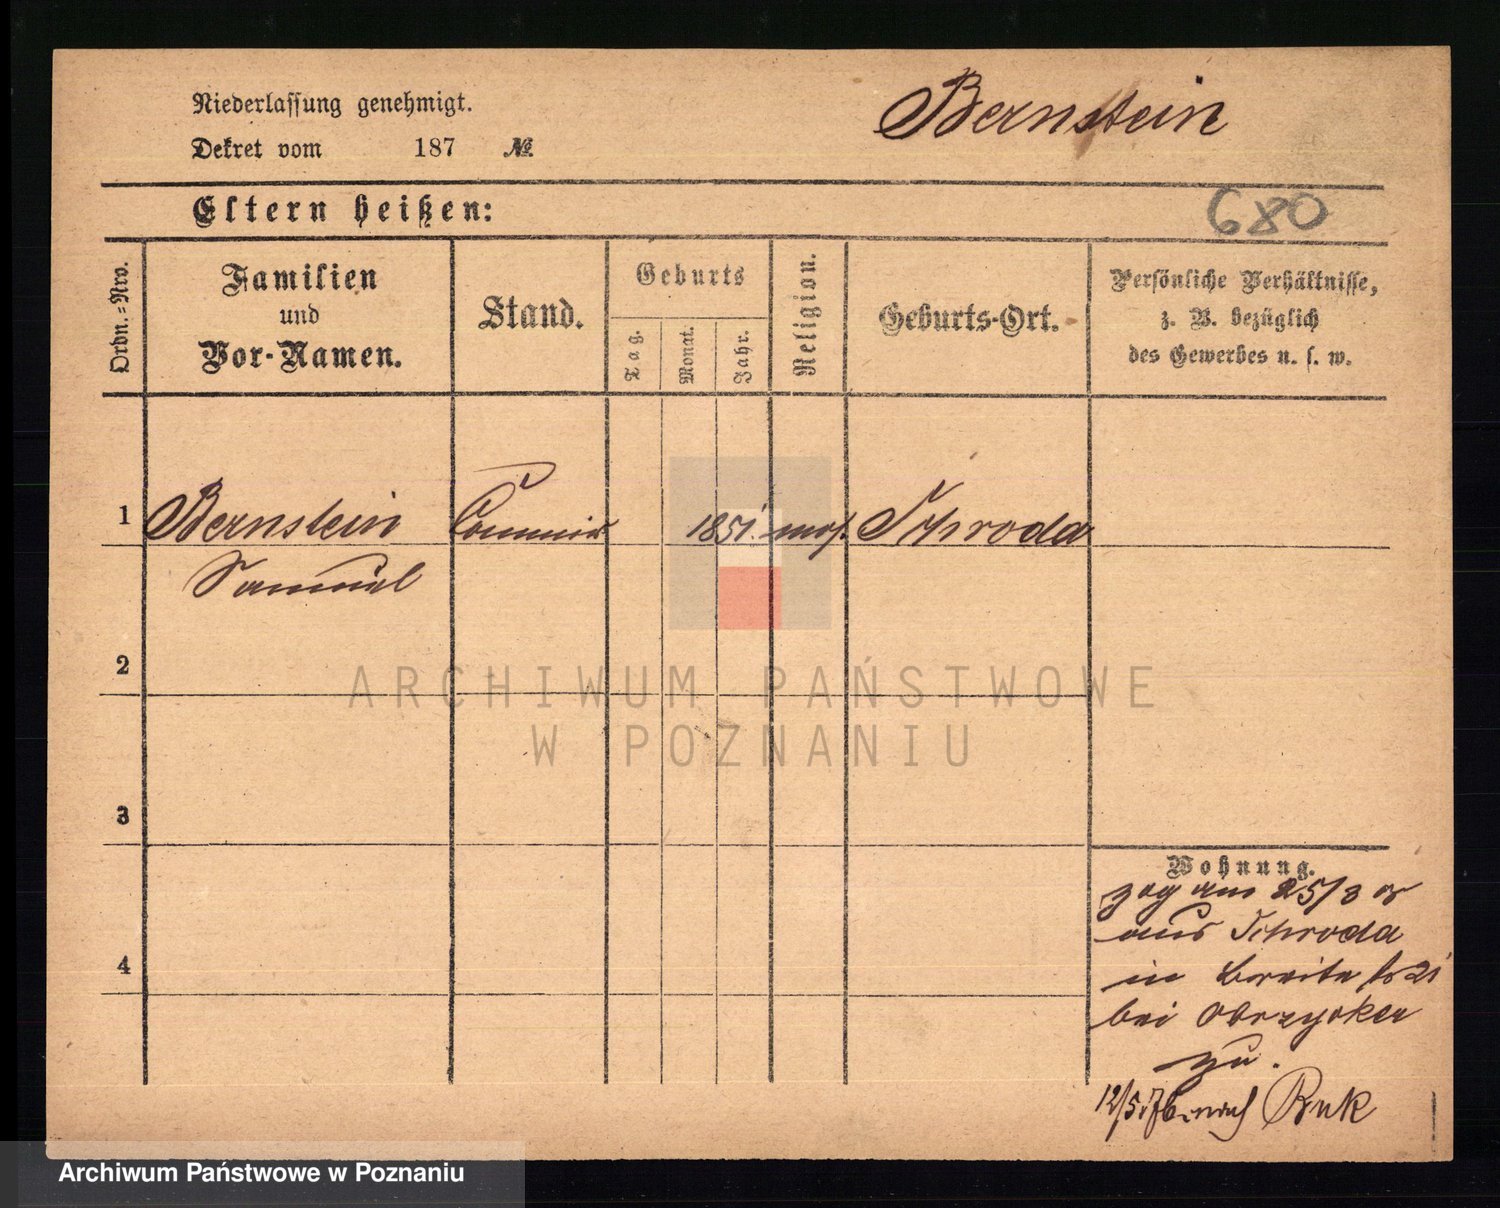 Niederlassung genehmigt.
Dekret vom 187 №
Bernstein
Eltern heißen:
680
Ordn.-Nro.
Familien
und
Vor-Namen.
Stand.
Geburts
Tag.
Monat.
Jahr.
Religion.
Geburts-Ort.
Persönliche Verhältnisse,
z. B. bezüglich
des Gewerbes u. s. w.
1 Bernstein Commis 1851. mos. Schroda
Samuel
2
ARCHIWUM PAŃSTWOWE
W POZNANIU
3
Wohnung.
zog am 25/3
aus Schroda
4
in Breite 21
bei Obrzycker
zu.
12/5.76. nach Buk
Archiwum Państwowe w Poznaniu